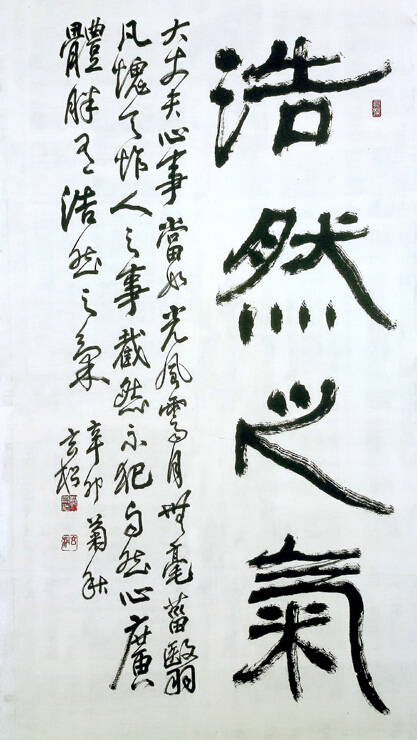 浩然之氣
大丈夫心事當如光風霽月無毫菑翳
凡愧天怍人之事截然不犯自然心廣
體胖有浩然之氣
辛卯菊秋
玄